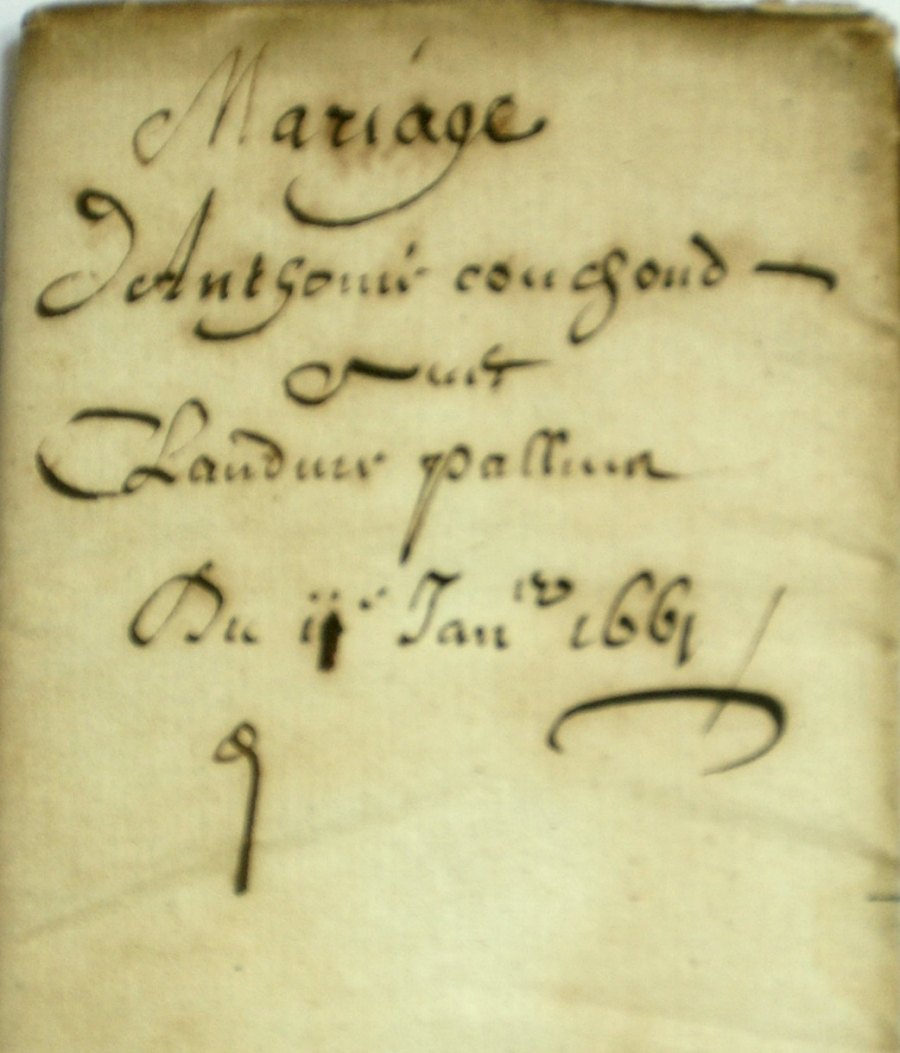 Mariage
d'Anthoine couchoud
avec
Claudine palliere
Du ii^e Jan^er 1661
9